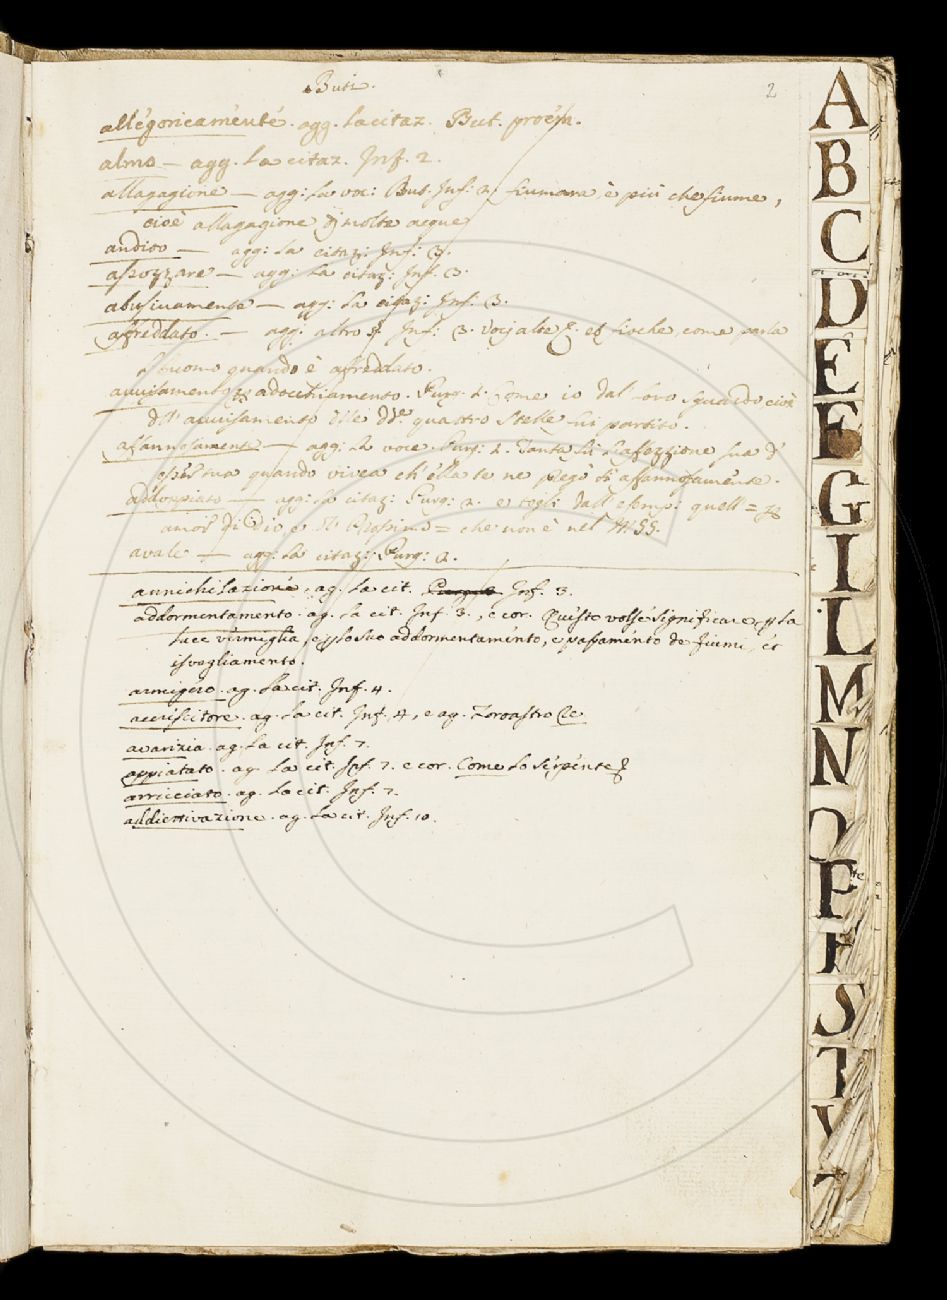 Buti.
2
allegoricamente. agg. la citaz. But. proem.
almo — agg. la citaz. Inf. 2.
allagagione — agg: la voc: But. Inf: 2. fiumara è più che fiume,
cioè allagagione di molte acque
andito — agg: la citaz: Inf: 3.
apozzare — agg: la citaz: Inf: 3.
abusivamente — agg: la citaz: Inf: 3.
affreddato. — agg: altro Inf: 3. Voci alte et fioche, come parla
l'uomo quando è affreddato.
avvisamento adocchiamento. Purg. 1. Come io dal loro sguardo cioè
avvisamento quattro Stelle fui partito.
affannosamente — agg: la voce. Purg: 2. l'affezzione sua
quando vivea ch'ella te ne pregò affannosamente.
addoppiato — agg: la citaz: Purg: 2. e togli dall'esemp: quell =
amor di Dio e Prossimo = che non è nel MSS.
avale — agg: la citaz: Purg: 2.
annichilazione. ag. la cit. Inf. 3.
addormentamento. ag. la cit. Inf. 3., e cor. Questo volse significare la
luce vermiglia, e lo suo addormentamento, e passamento de fiumi, et
isvegliamento.
armigero. ag. la cit. Inf. 4.
accriscitore. ag. la cit. Inf. 4, e ag. Zoroastro
avarizia. ag. la cit. Inf. 7.
appiatato. ag. la cit. Inf. 7. e cor. Come lo serpente
arricciato. ag. la cit. Inf. 7.
addiettivazione. ag. la cit. Inf. 10.
A
B
C
D
E
F
G
I
L
M
N
O
P
R
S
T
V
Z